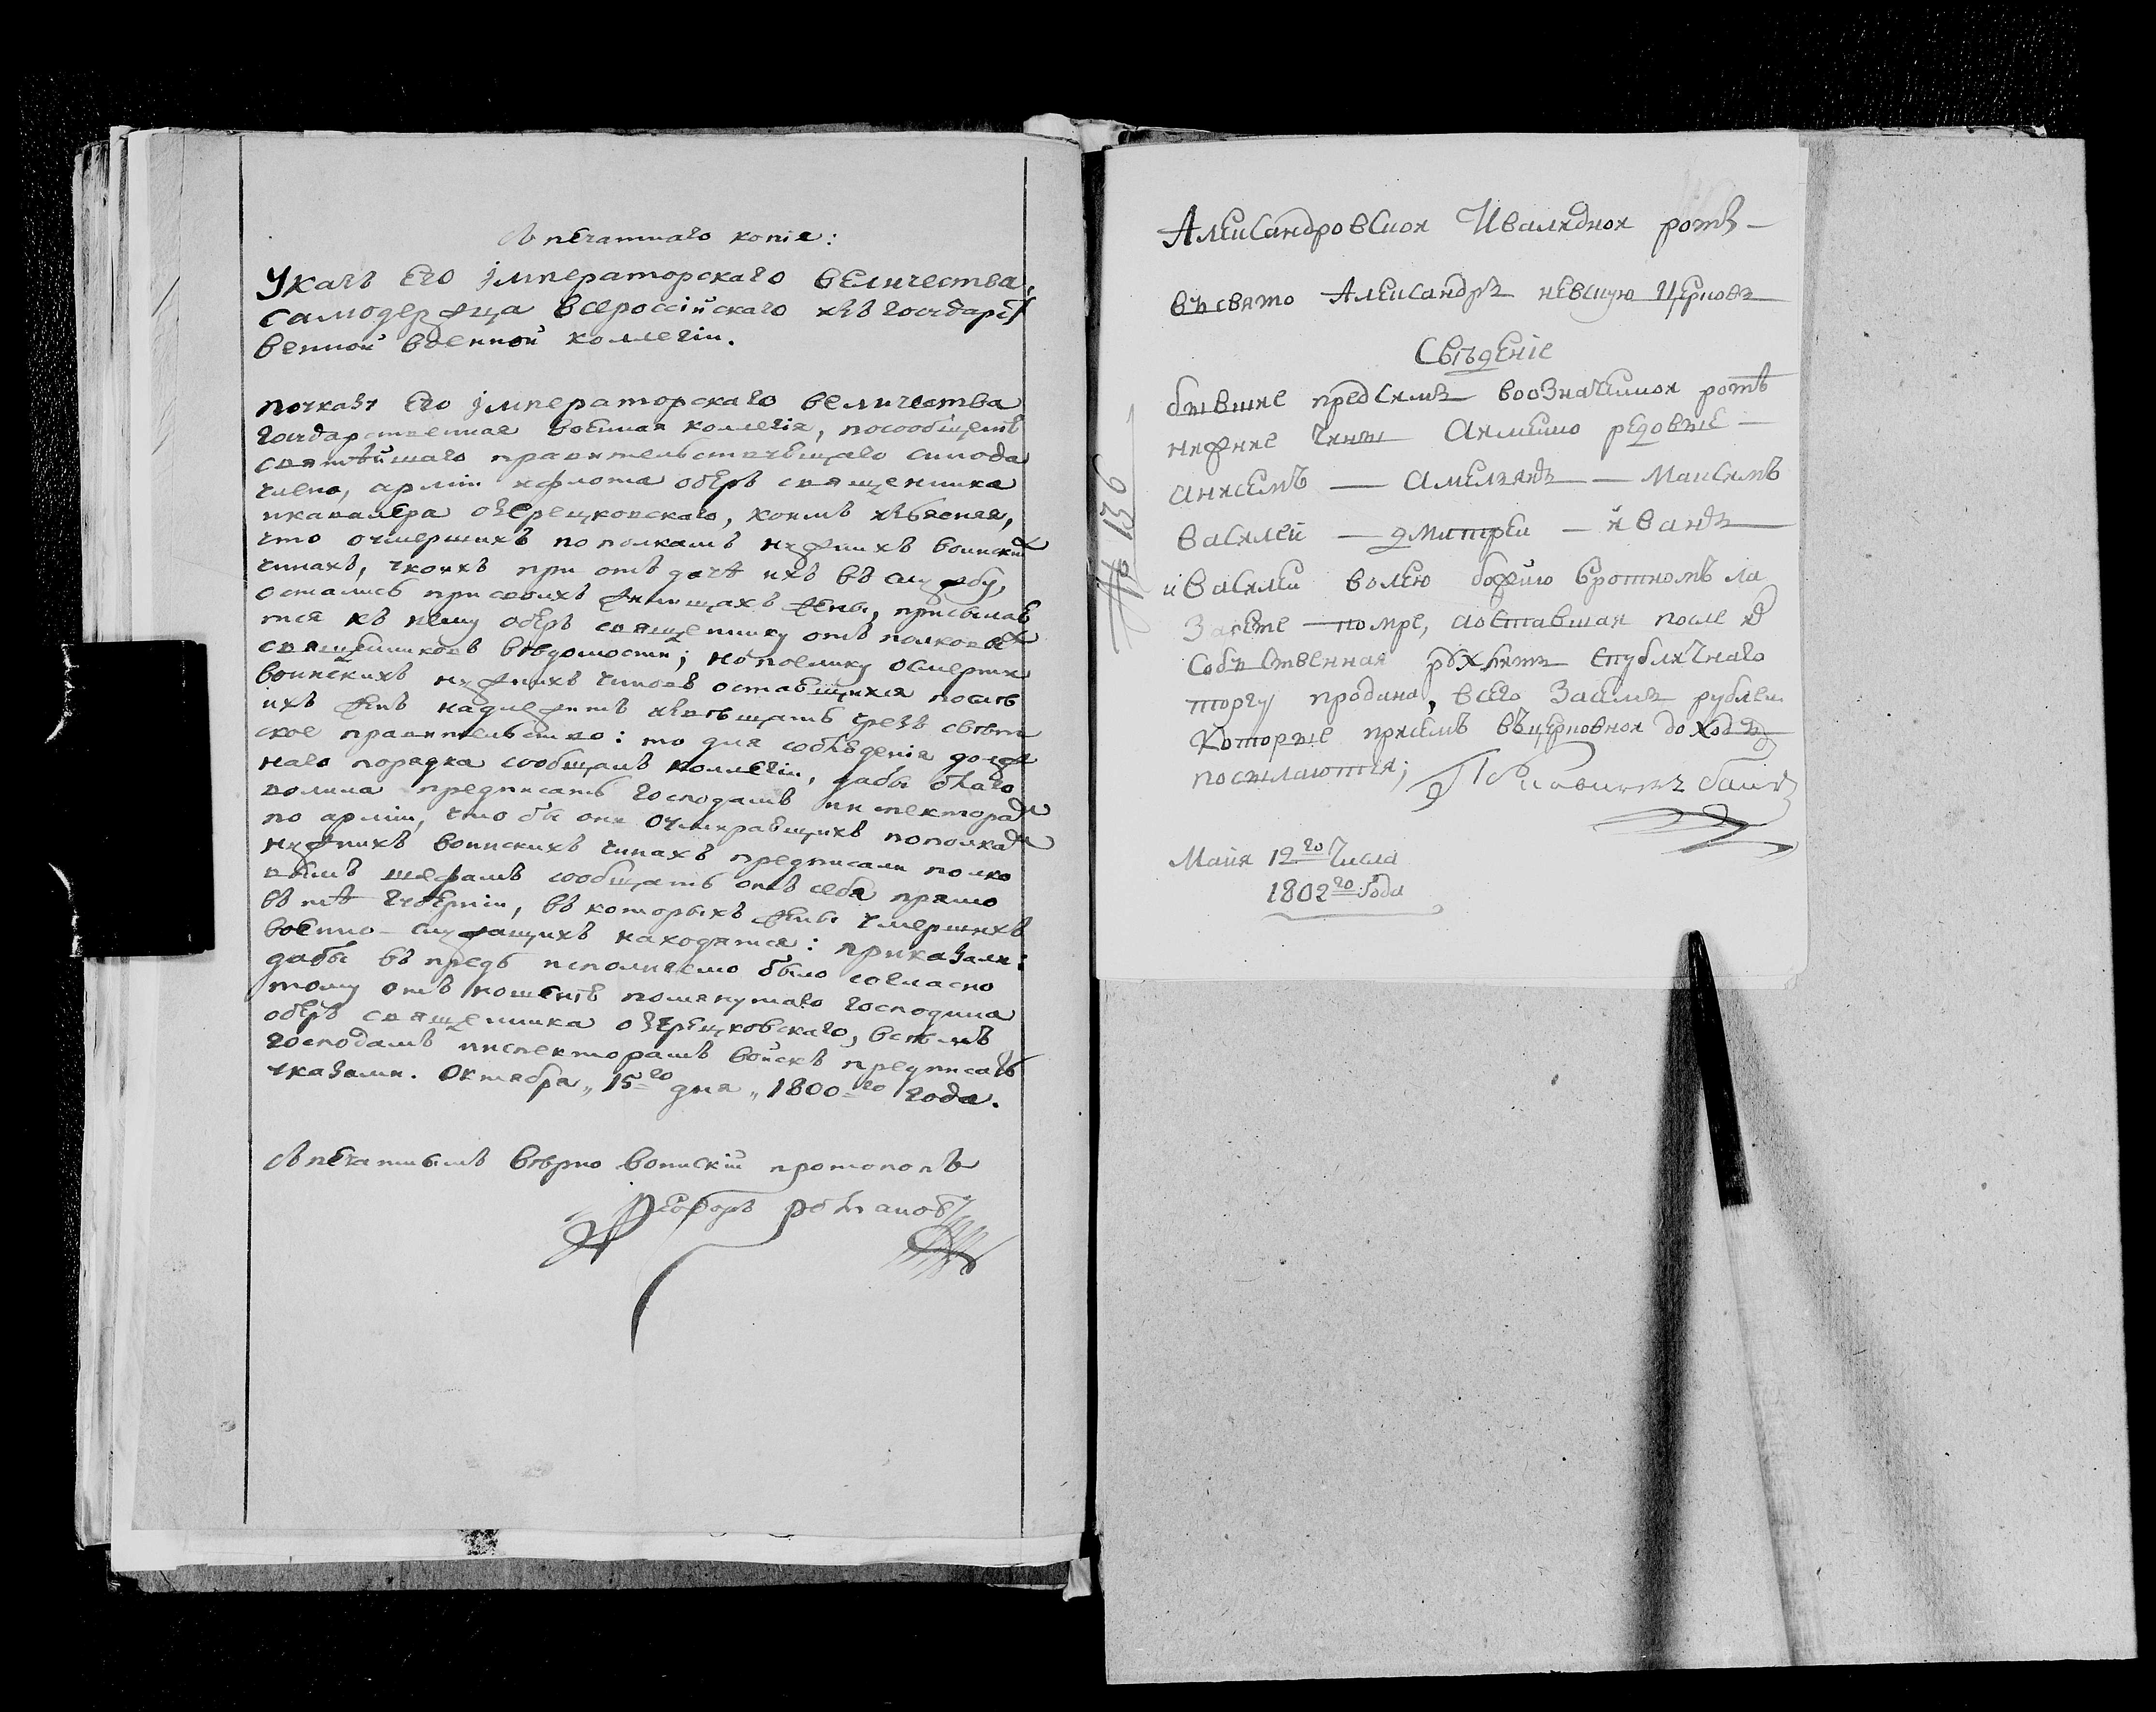 Съ печатнаго копiя:
Указъ Его императорскаго величества,
самодержца всероссiйскаго изъ государст
венной военной коллегiи.
по указу Его императорскаго величества
государственная военная коллегiя, посообщенiю
святѣйшаго правительствующаго синода
члена, армiи ифлота оберъ священника
икавалера озерецковскаго, коимъ изъясняя,
что оумершихъ пополкамъ нижнихъ воинскихъ
чинахъ, укоихъ при отъ дачѣ ихъ въ службу,
остались присвоихъ жилищахъ жены, присылаю
тся къ нему оберъ священнику отъ полковыхъ
священниковъ вѣдомости; нопоелику осмерти
воинскихъ нижнихъ чиновъ оставшихся послѣ
ихъ женъ надлежитъ извѣщать чрезъ свѣт
ское правительство: то для соблюденiя долж
наго порядка сообщалъ коллегiи, дабы благо
волила предписать господамъ инспекторамъ
по армiи, что бы они оумирающихъ пополкамъ
нижнихъ воинскихъ чинахъ предписали полко
вымъ шефамъ сообщать отъ себя прямо
въ тѣ губернiи, въ которыхъ жены умершихъ
военно-служащихъ находятся: приказали:
дабы въ предь исполняемо было согласно
тому отъ ношенiю помянутаго господина
оберъ священника озерецковскаго, всѣмъ
господамъ инспекторамъ войскъ предписать
указами. Октября „15го дня „1800го года.
Съ печатнымъ вѣрно воинскiй протопопъ
феодоръ
№ 136
Александровской Инвалидной ротѣ—
въ свято Александръ невскую церковь
Свѣденiе
бывшие предсимъ
нижние чины рядовые—
анисемъ — Амельянъ — Максимъ
Василей — дмитрей — иванъ
и Василей волею божию вротномъ ла
зарете помре, аоставшая после их
собственная спубличнаго
торгу продана, всего рублей
Которые присемъ въцерковной доходъ
посылаются;
Майя 12го Числа
1802го Года